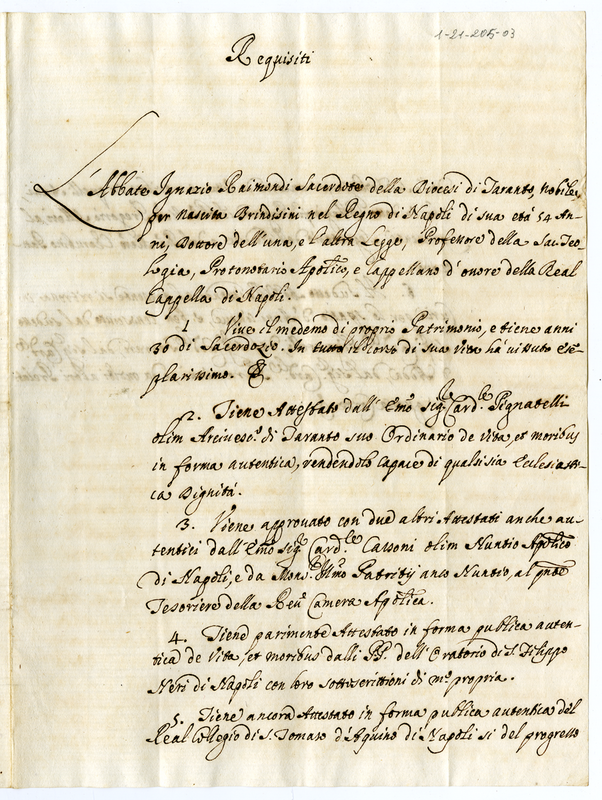 1-21-205-03
Requisiti
L'Abbate Ignazio Raimondi Sacerdote della Diocesi di Taranto, Nobile
per nascita Brindisini nel Regno di Napoli di sua età 52 An-
ni, Dottore dell'una, e l'altra Legge, Professore della Sac. Teo
logia, Protonotario Apostico, e Cappellano d'onore della Real
Cappella di Napoli.
1 Vive il medemo di proprio Patrimonio, e tiene anni
30 di Sacerdozio. In tutto il Corso di sua Vita hà vissuto Ese-
plarissimo.
2. Tiene Attestato dall' Emo Sig.r Card.le Pignatelli
olim Arcivesc.o di Taranto suo Ordinario de vita, et moribus
in forma autentica, rendendolo capace di qualsisia Ecclesiasti-
ca Dignità.
3. Viene approvato con due altri Attestati anche au-
tentici dall'Emo Sig.r Card.le Cassoni olim Nuntio Aplico
di Napoli, e da Mons.r Illmo Patritij anco Nuntio, al pnte
Tesoriere della Reu. Camera Aplica.
4. Tiene parimente Attestato in forma publica auten-
tica de Vita, et moribus dalli PP. dell'Oratorio di S. Filippo
Neri di Napoli con loro sottoscrittioni di m.o propria.
5. Tiene ancora Attestato in forma publica autentica del
Real Collegio di S. Tomaso d'Aquino di Napoli si del progresso